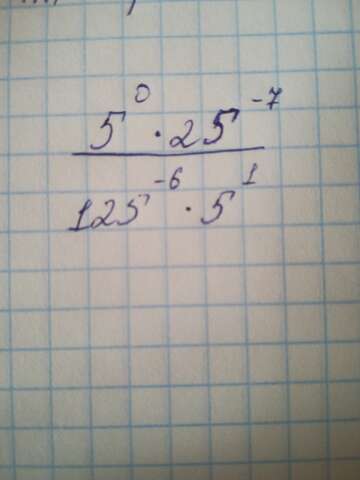 5⁰ · 25⁻⁷
125⁻⁶ · 5¹